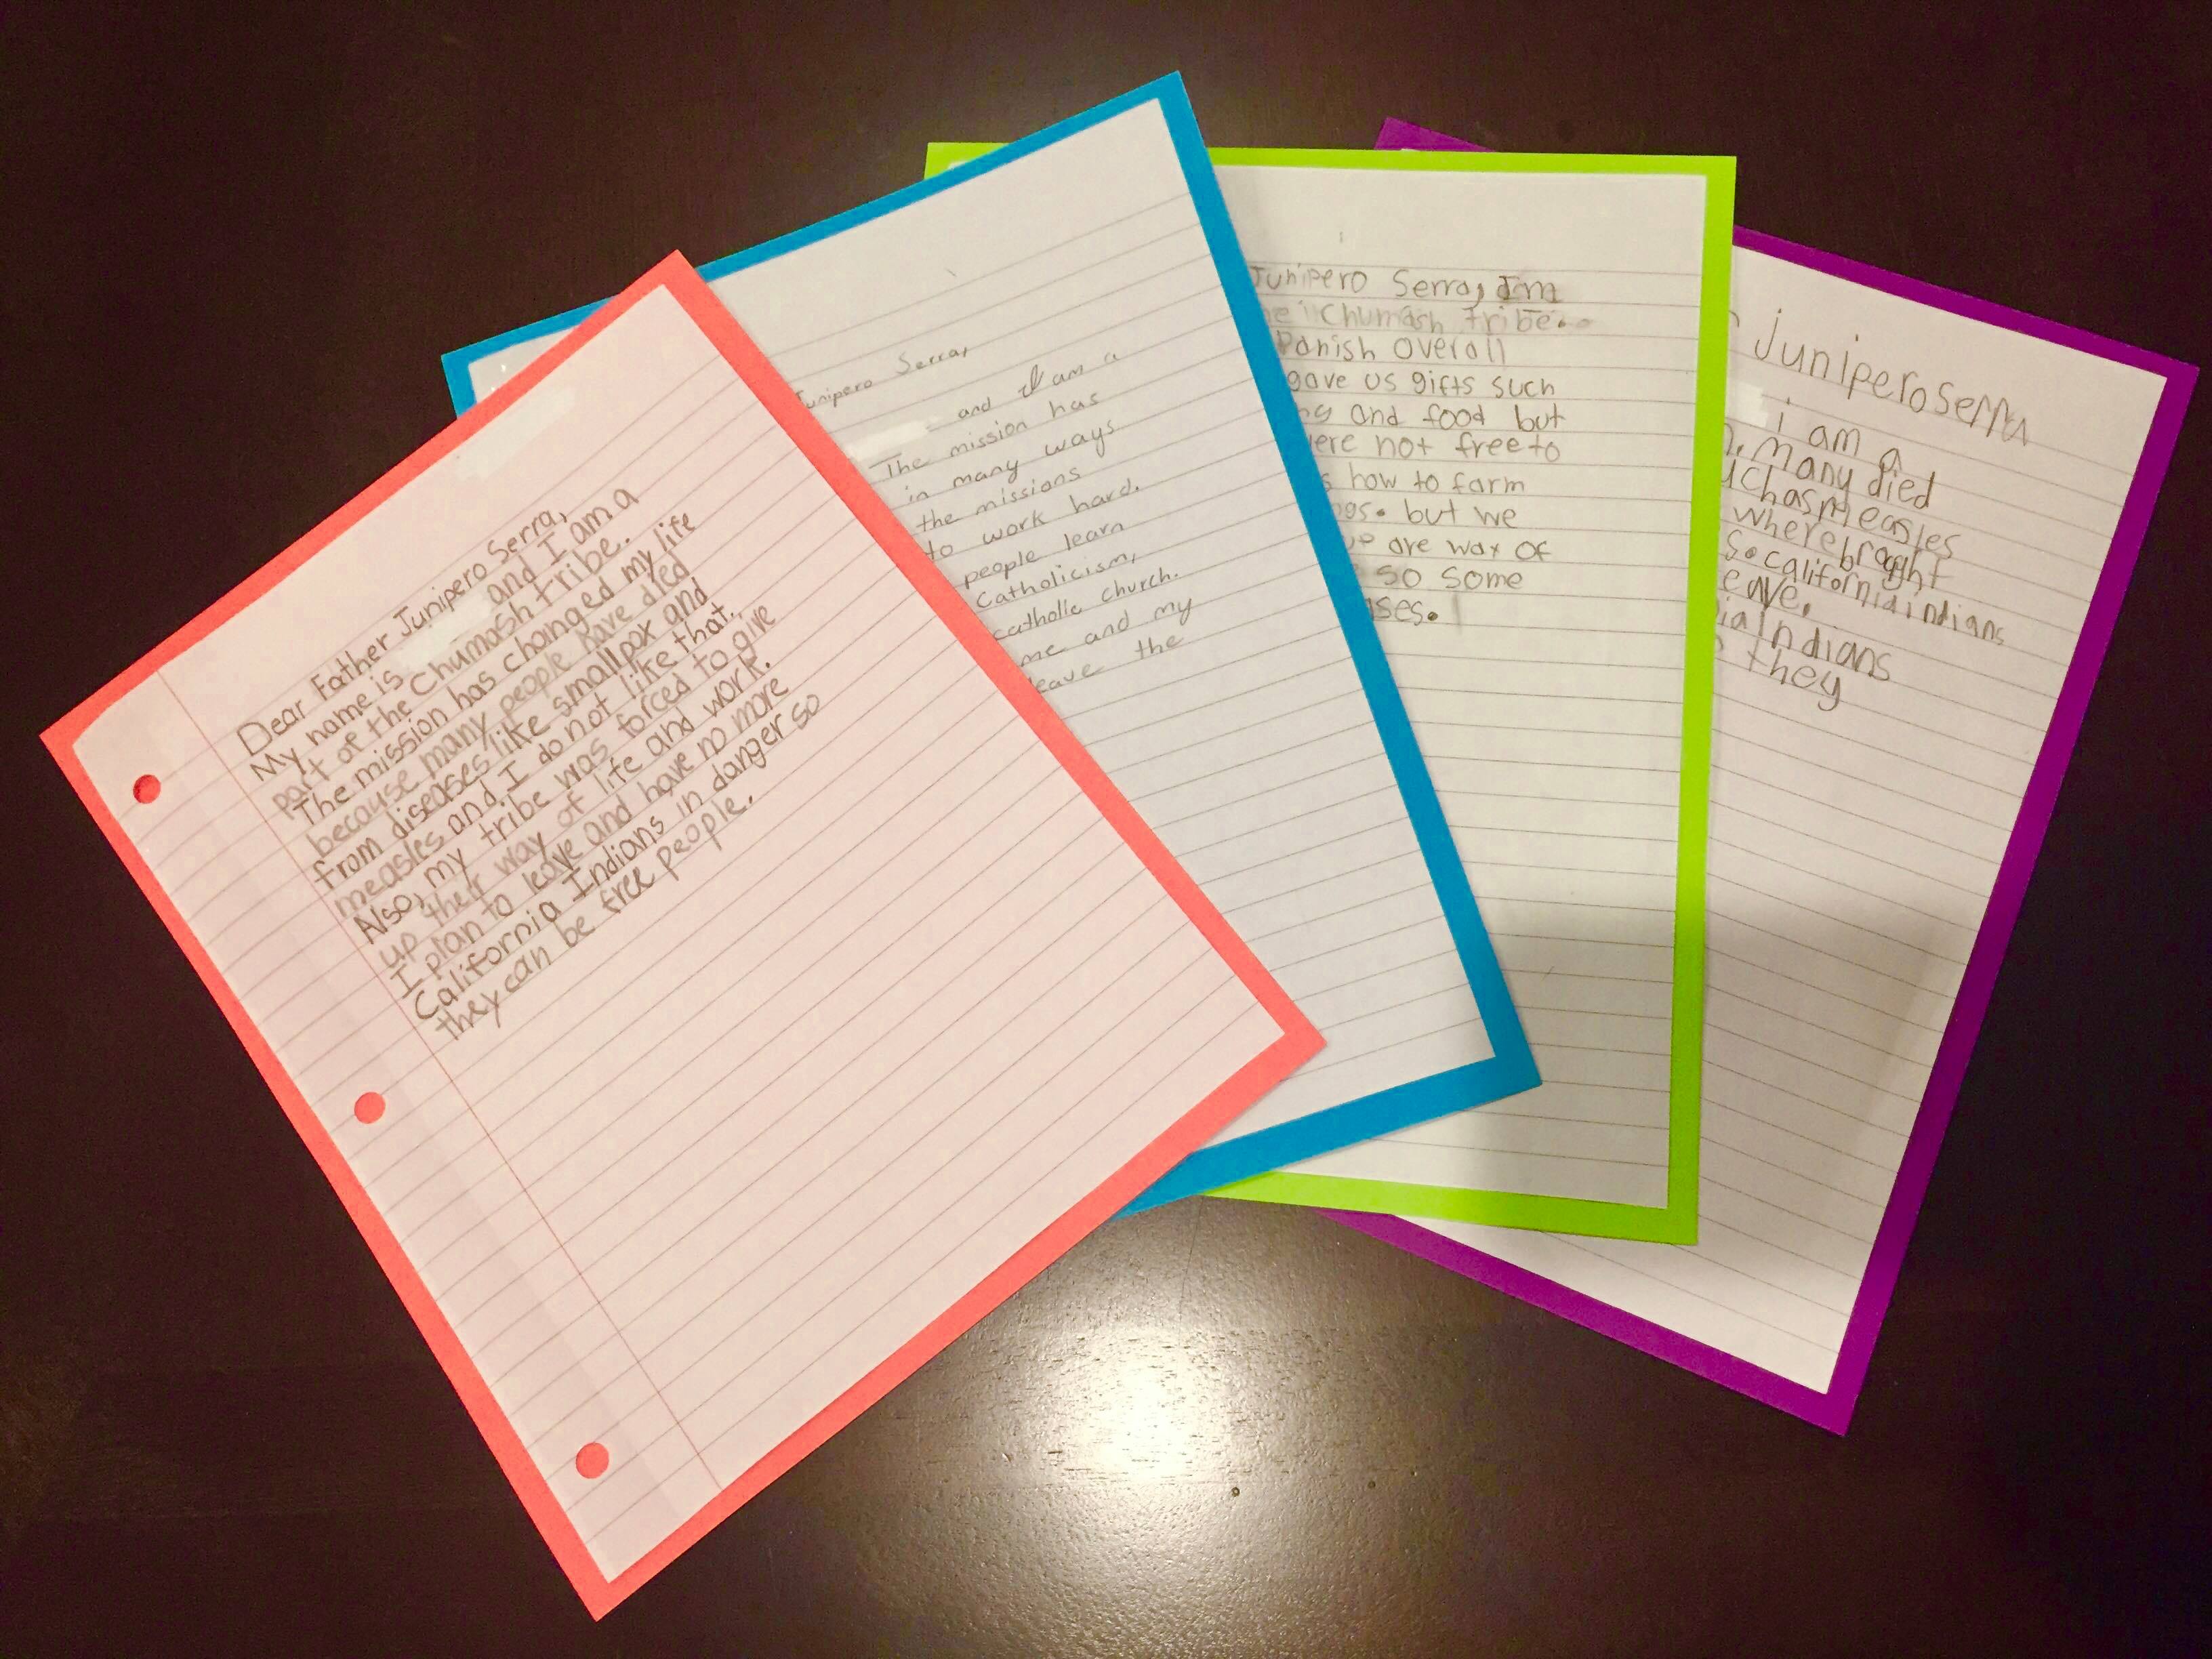 Dear Father Junipero Serra,
My name is and I am a
part of the Chumash tribe.
The mission has changed my life
because many people have died
from diseases like smallpox and
measles and I do not like that.
Also, my tribe was forced to give
up their way of life and work.
I plan to leave and have no more
California Indians in danger so
they can be free people.
Junipero Serra,
and I am a
The mission has
in many ways
the missions
to work hard.
people learn
Catholicism,
catholic church.
me and my
leave the
Junipero Serra, I'm
Chumash tribe.
Panish overall
gave us gifts such
and food but
ere not free to
how to farm
but we
are wax of
so some
ses.
Junipero Serra
i am a
many died
uch as measles
where brought
s. california indians
eave.
ia Indians
they